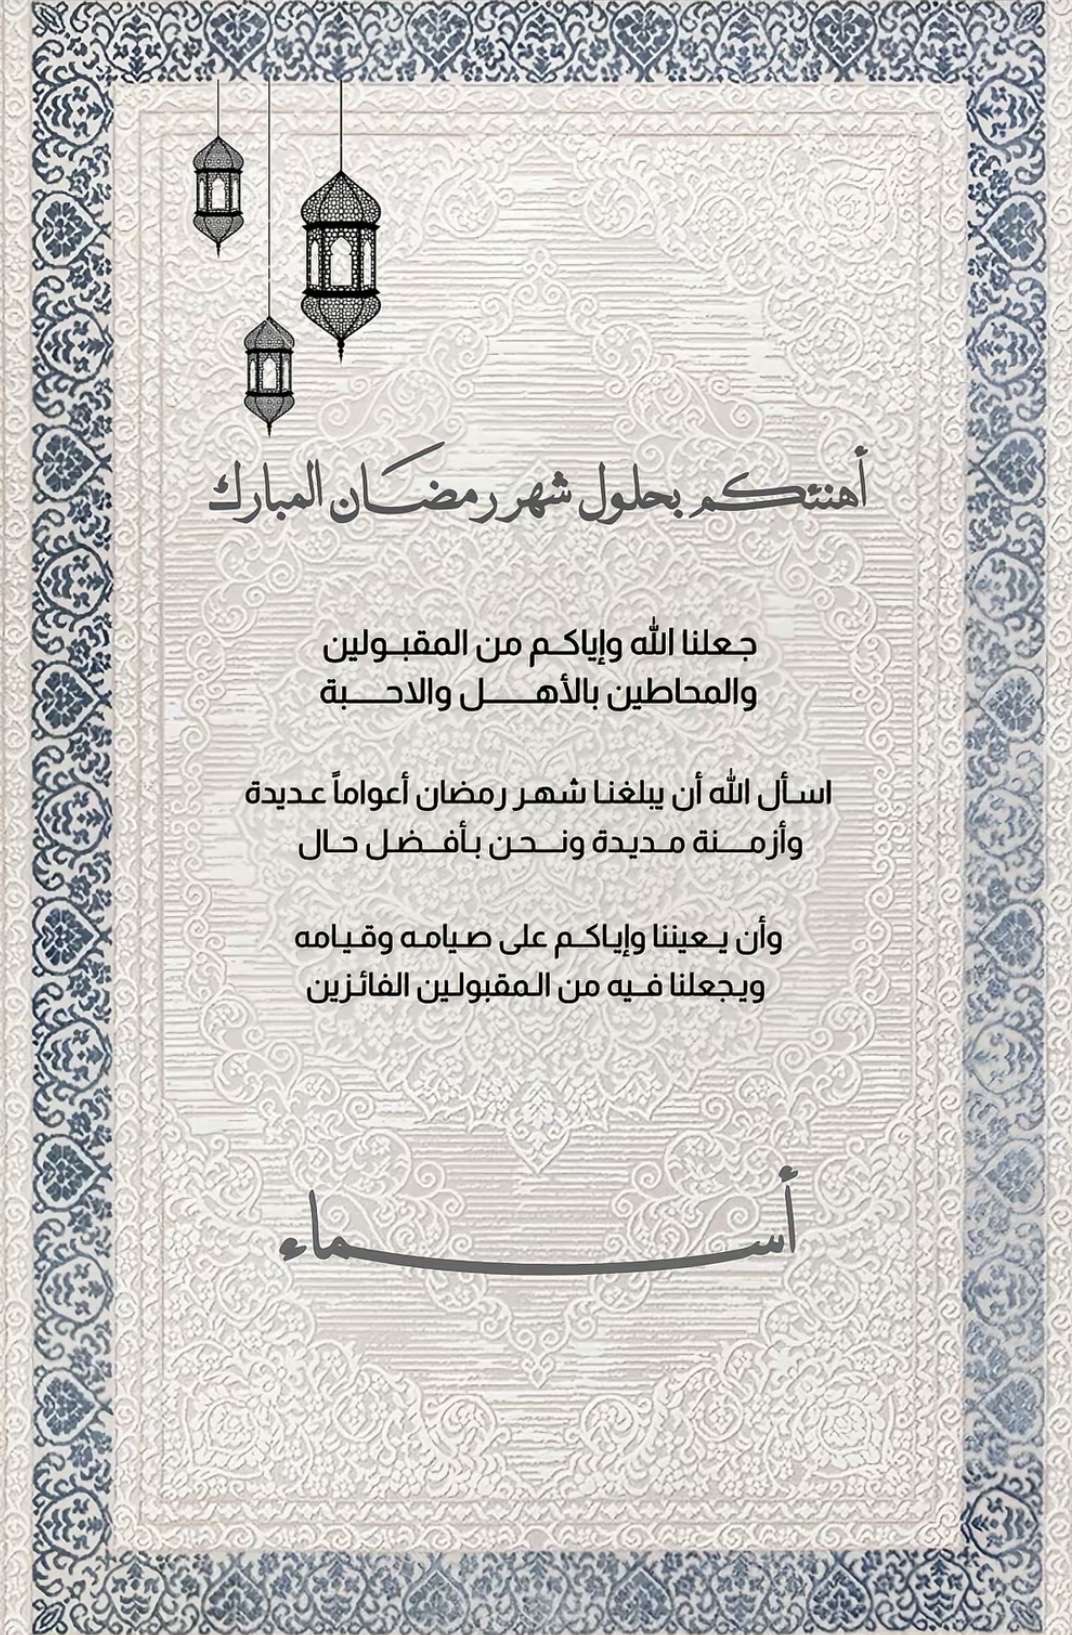 أهنئكم بحلول شهر رمضان المبارك
جعلنا الله وإياكم من المقبولين
والمحاطين بالأهل والاحبة
اسأل الله أن يبلغنا شهر رمضان أعواماً عديدة
وأزمنة مديدة ونحن بأفضل حال
وأن يعيننا وإياكم على صيامه وقيامه
ويجعلنا فيه من المقبولين الفائزين
أسماء